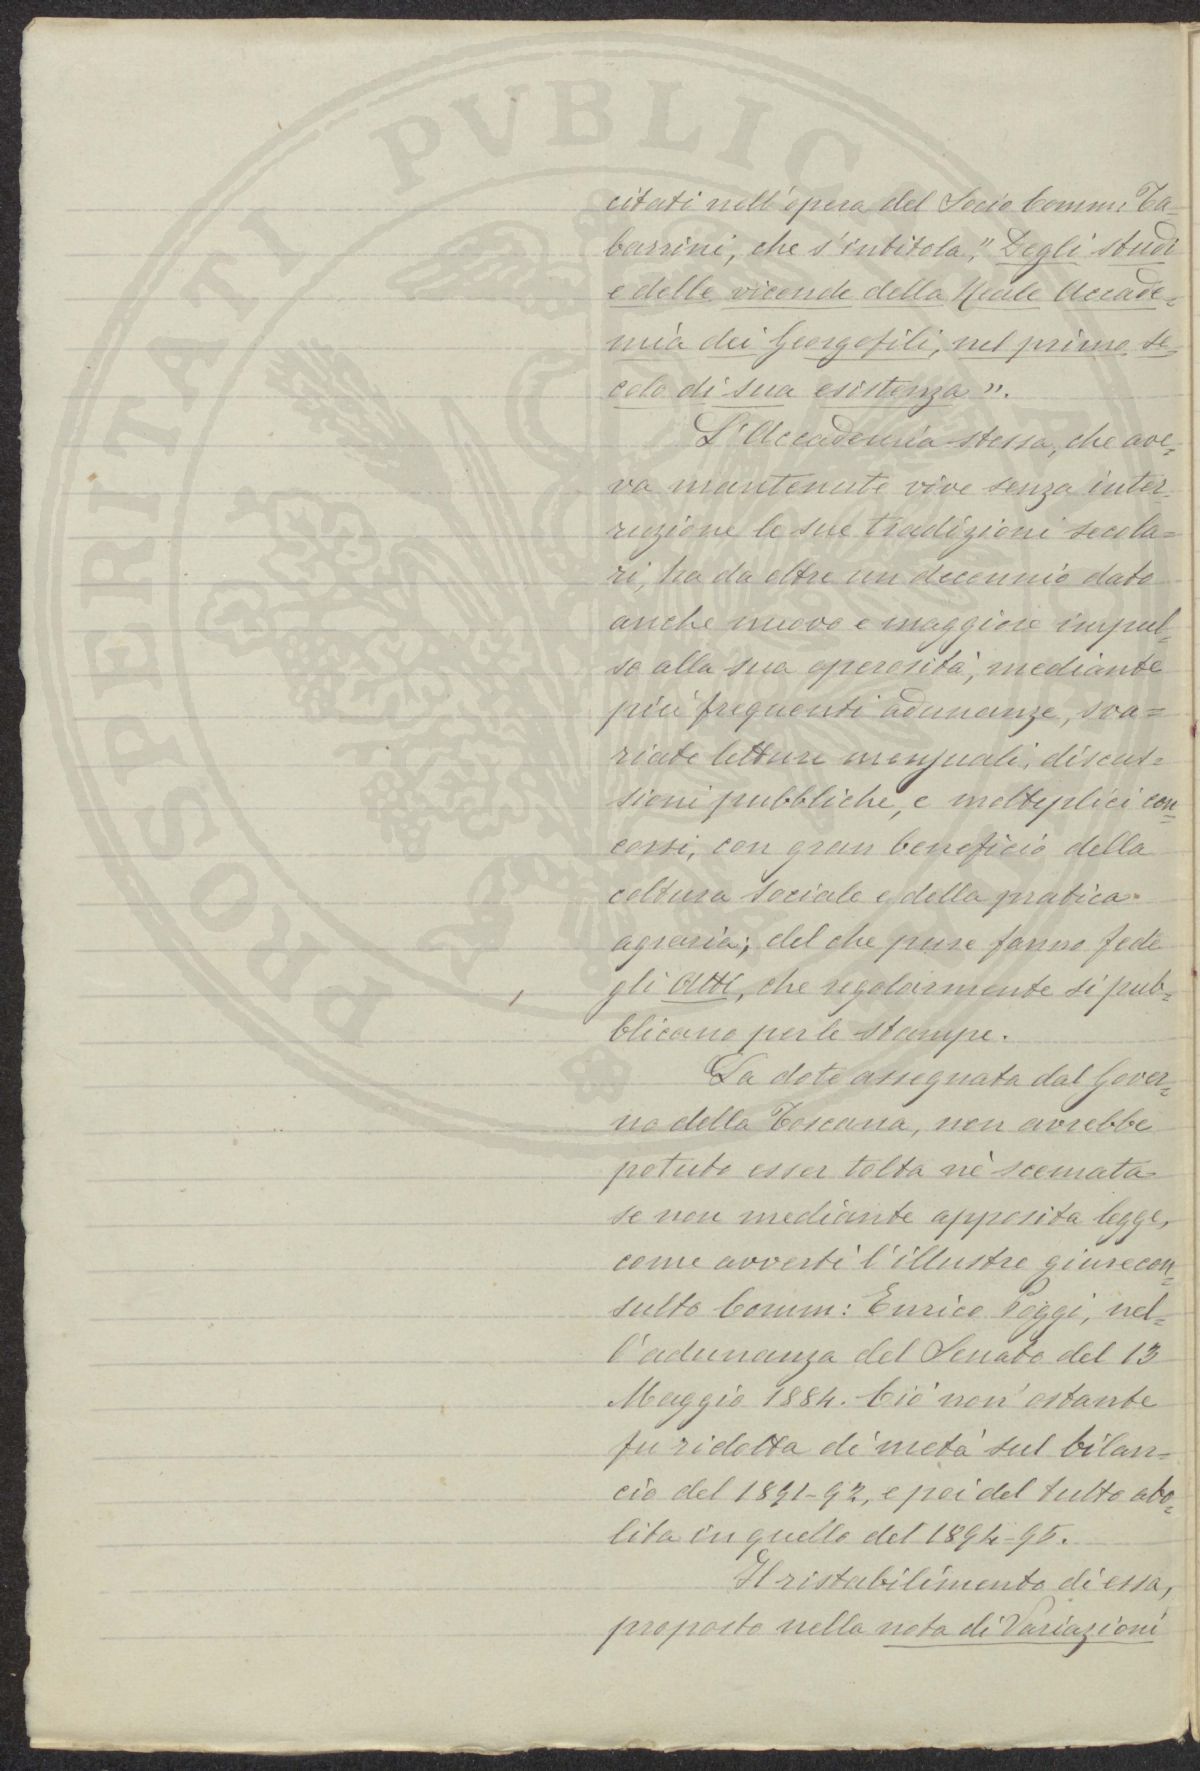 PROSPERITATI PVBLICAE
citati nell'opera del Socio Comm: Ta=
barrini, che s'intitola „Degli studi
e delle vicende della Reale Accade=
mia dei Georgofili, nel primo se=
colo di sua esistenza".
L'Accademia stessa, che ave=
va mantenute vive senza inter=
ruzione le sue tradizioni secola=
ri, ha da oltre un decennio dato
anche nuovo e maggiore impul=
so alla sua operosità, mediante
più frequenti adunanze, sva=
riate letture mensuali, discus=
sioni pubbliche, e molteplici con=
corsi, con gran beneficio della
coltura sociale e della pratica
agraria; del che pure fanno fede
gli Atti, che regolarmente si pub=
blicano per le stampe.
La dote assegnata dal Gover=
no della Toscana, non avrebbe
potuto esser tolta nè scemata
se non mediante apposita legge,
come avvertì l'illustre giurecon=
sulto Comm: Enrico Poggi, nel=
l'adunanza del Senato del 13
Maggio 1884. Ciò non'ostante
fu ridotta di metà sul bilan=
cio del 1891-92, e poi del tutto abo=
lita in quello del 1894-95.
Il ristabilimento di essa,
proposto nella nota di Variazioni